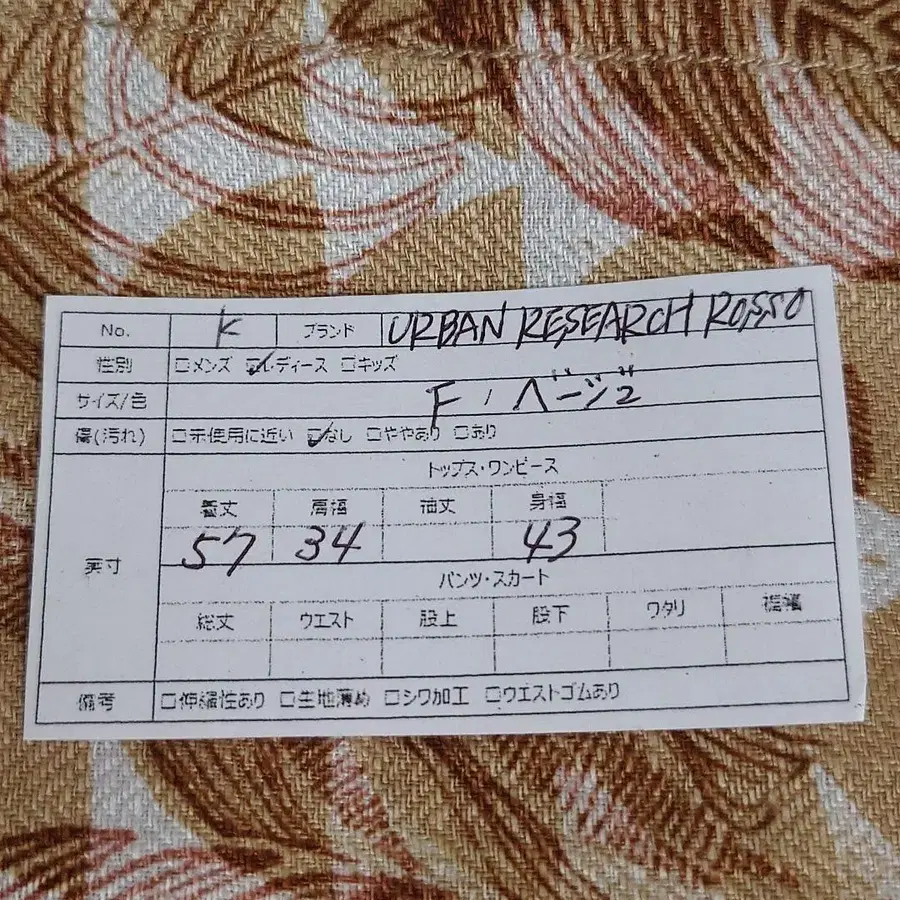 No. K ブランド URBAN RESEARCH ROSSO
性別 □メンズ ☑レディース □キッズ
サイズ/色 F, ベージュ
傷(汚れ) □未使用に近い ☑なし □ややあり □あり
トップス・ワンピース
着丈 肩幅 袖丈 身幅
実寸 57 34 43
パンツ・スカート
総丈 ウエスト 股上 股下 ワタリ 裾幅
備考 □伸縮性あり □生地薄め □シワ加工 □ウエストゴムあり